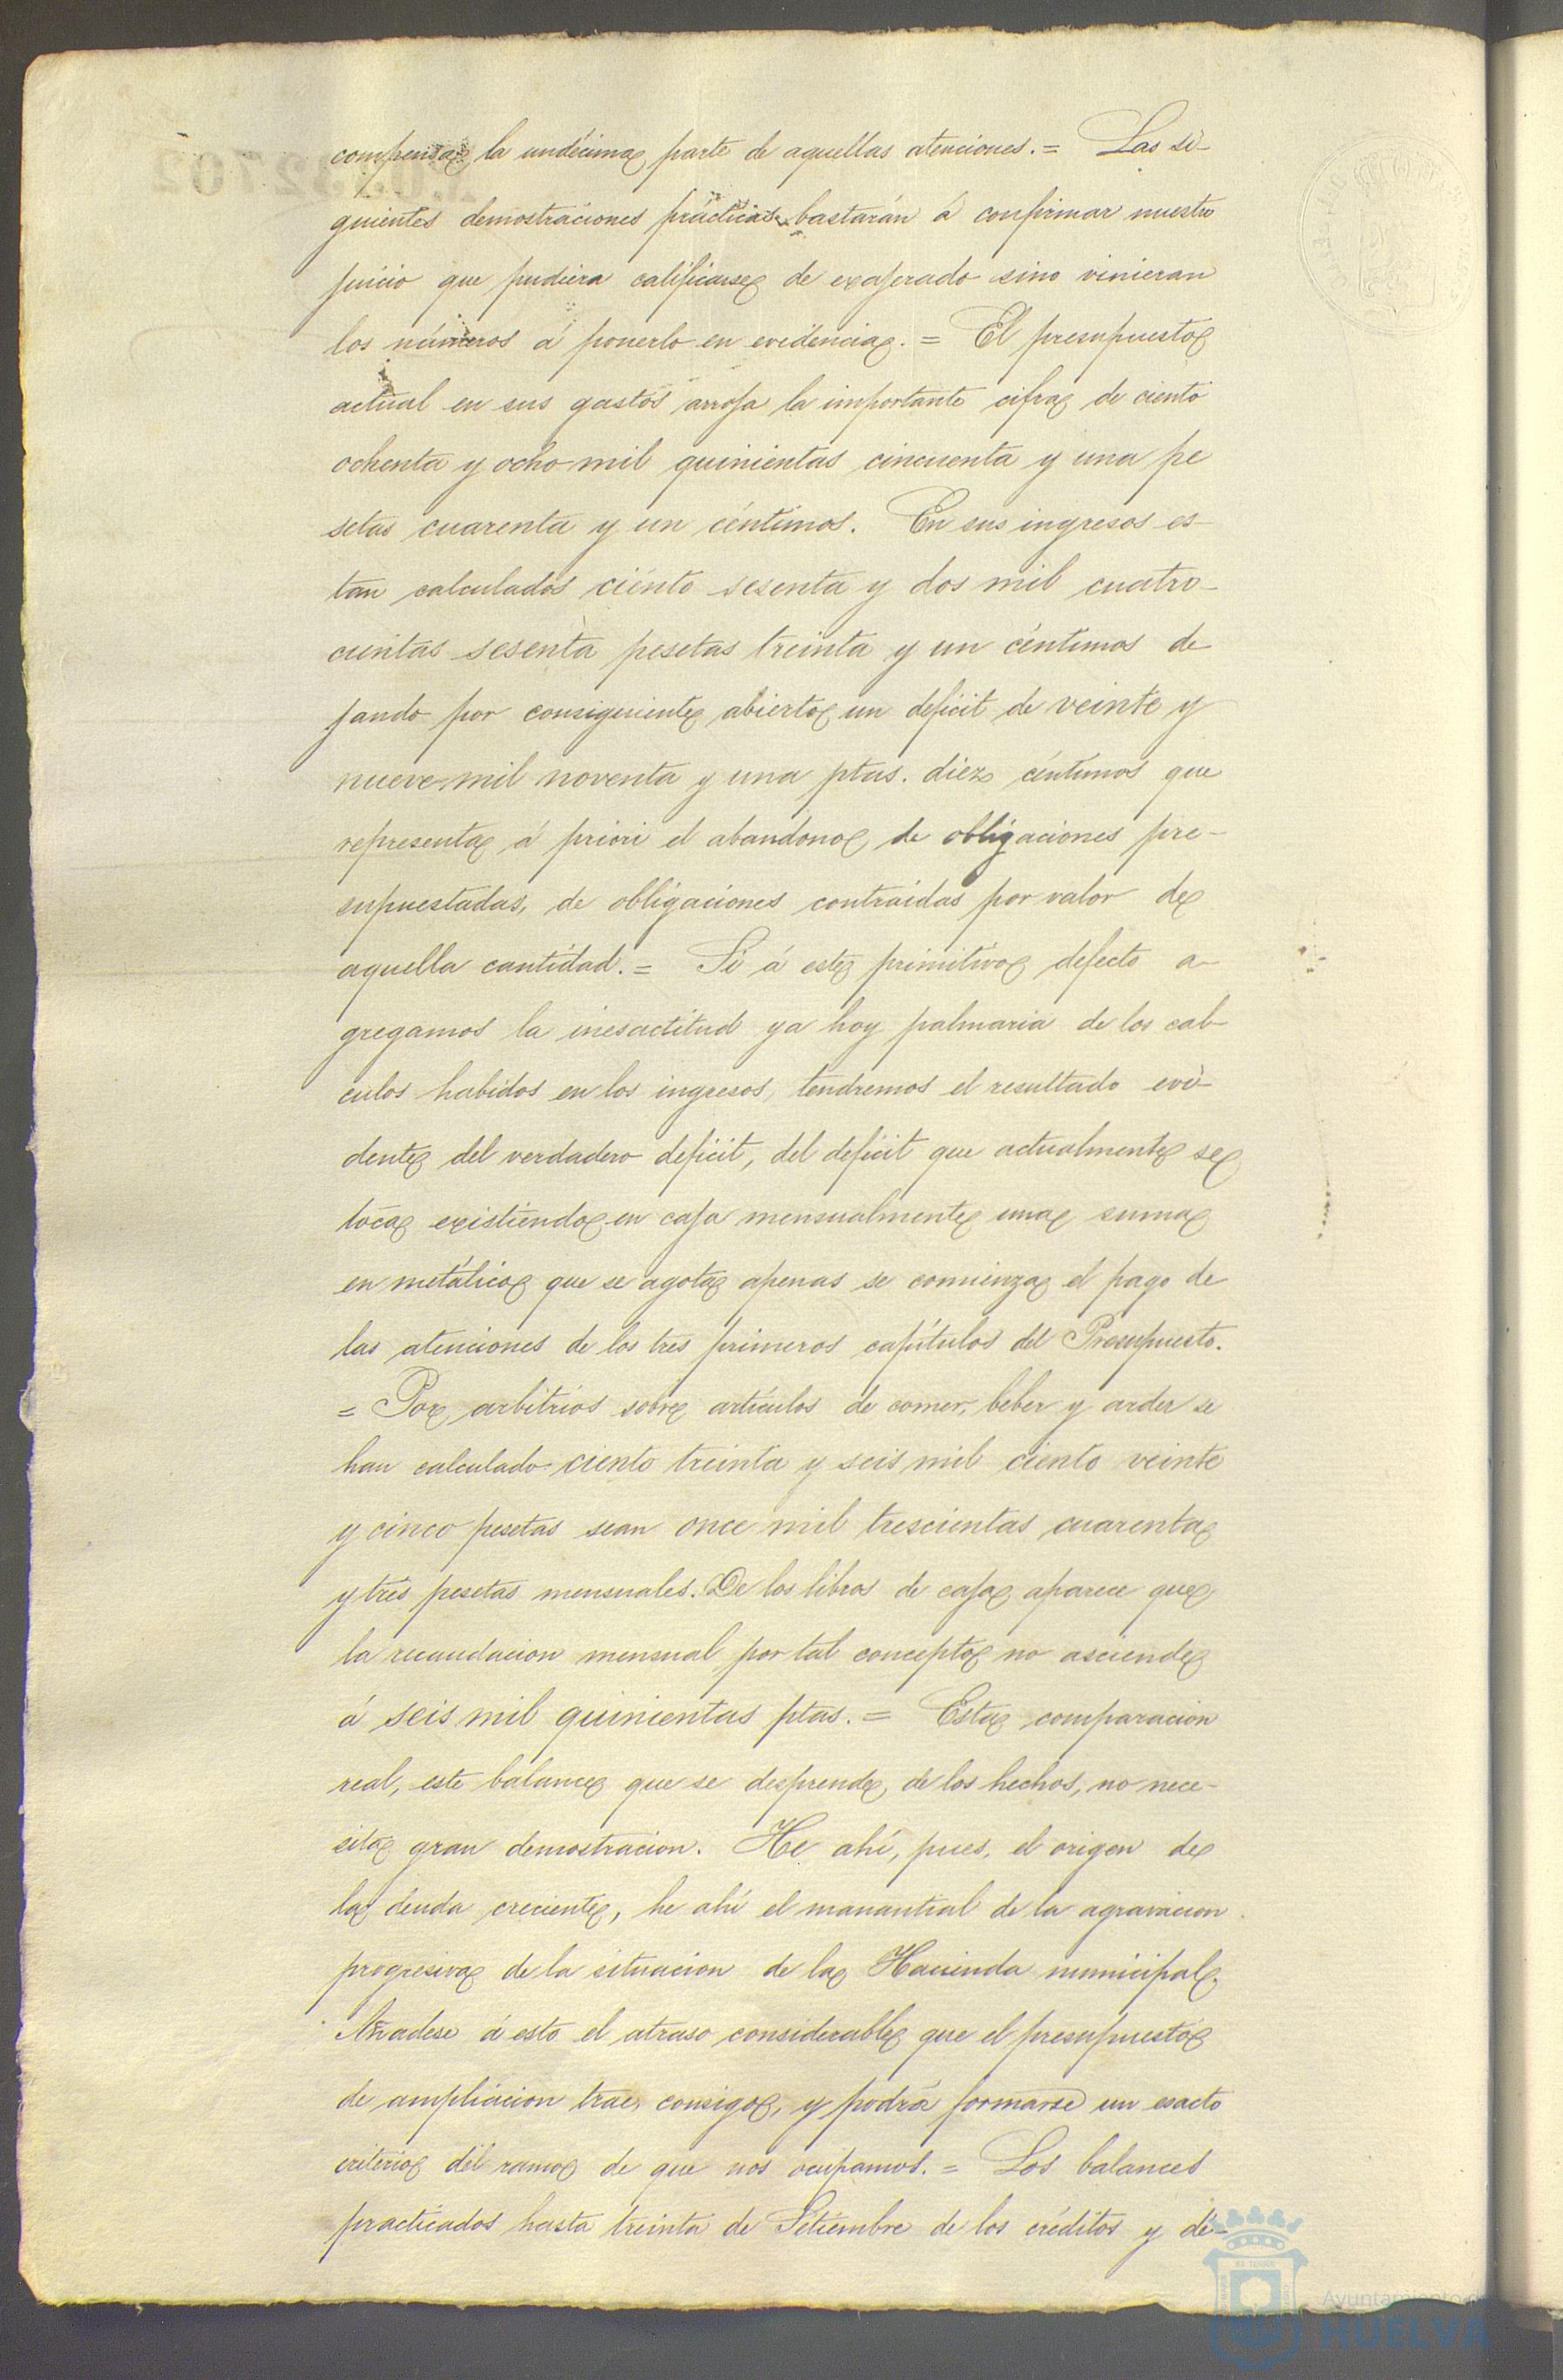 compensa la undécima parte de aquellas atenciones. = Las si-
guientes demostraciones prácticas bastarán á confirmar nuestro
juicio que pudiera calificarse de exajerado sino vinieran
los números á ponerlo en evidencia. = El presupuesto
actual en sus gastos arroja la importante cifra de ciento
ochenta y ocho mil quinientas cincuenta y una pe
setas cuarenta y un céntimos. En sus ingresos es-
tan calculados ciento sesenta y dos mil cuatro-
cientas sesenta pesetas treinta y un céntimos de
jando por consiguiente abierto un deficit de veinte y
nueve mil noventa y una ptas. diez céntimos que
representa á priori el abandono de obligaciones pre-
supuestadas, de obligaciones contraidas por valor de
aquella cantidad. = Si á este primitivo defecto a-
gregamos la inesactitud ya hoy palmaria de los cal-
culos habidos en los ingresos, tendremos el resultado evi-
dente del verdadero deficit, del deficit que actualmente se
toca existiendo en caja mensualmente una suma
en metálico que se agota apenas se comienza el pago de
las atenciones de los tres primeros capítulos del Presupuesto.
= Por arbitrios sobre artículos de comer, beber y arder se
han calculado ciento treinta y seis mil ciento veinte
y cinco pesetas sean once mil trescientas cuarenta
y tres pesetas mensuales. De los libros de caja aparece que
la recaudacion mensual por tal concepto no asciende
á seis mil quinientas ptas. = Esta comparacion
real, este balance que se desprende de los hechos, no nece-
sita gran demostracion. He ahí, pues, el origen de
la deuda creciente, he ahí el manantial de la agravacion
progresiva de la situacion de la Hacienda municipal.
Añadese á esto el atraso considerable que el presupuesto
de ampliacion trae consigo, y podrá formarse un esacto
criterio del ramo de que nos ocupamos. = Los balances
practicados hasta treinta de Setiembre de los créditos y dé-
Ayuntamiento de
HUELVA